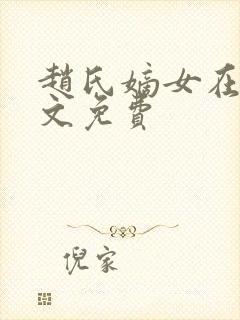 趙氏嫡女在
文免費
倪家